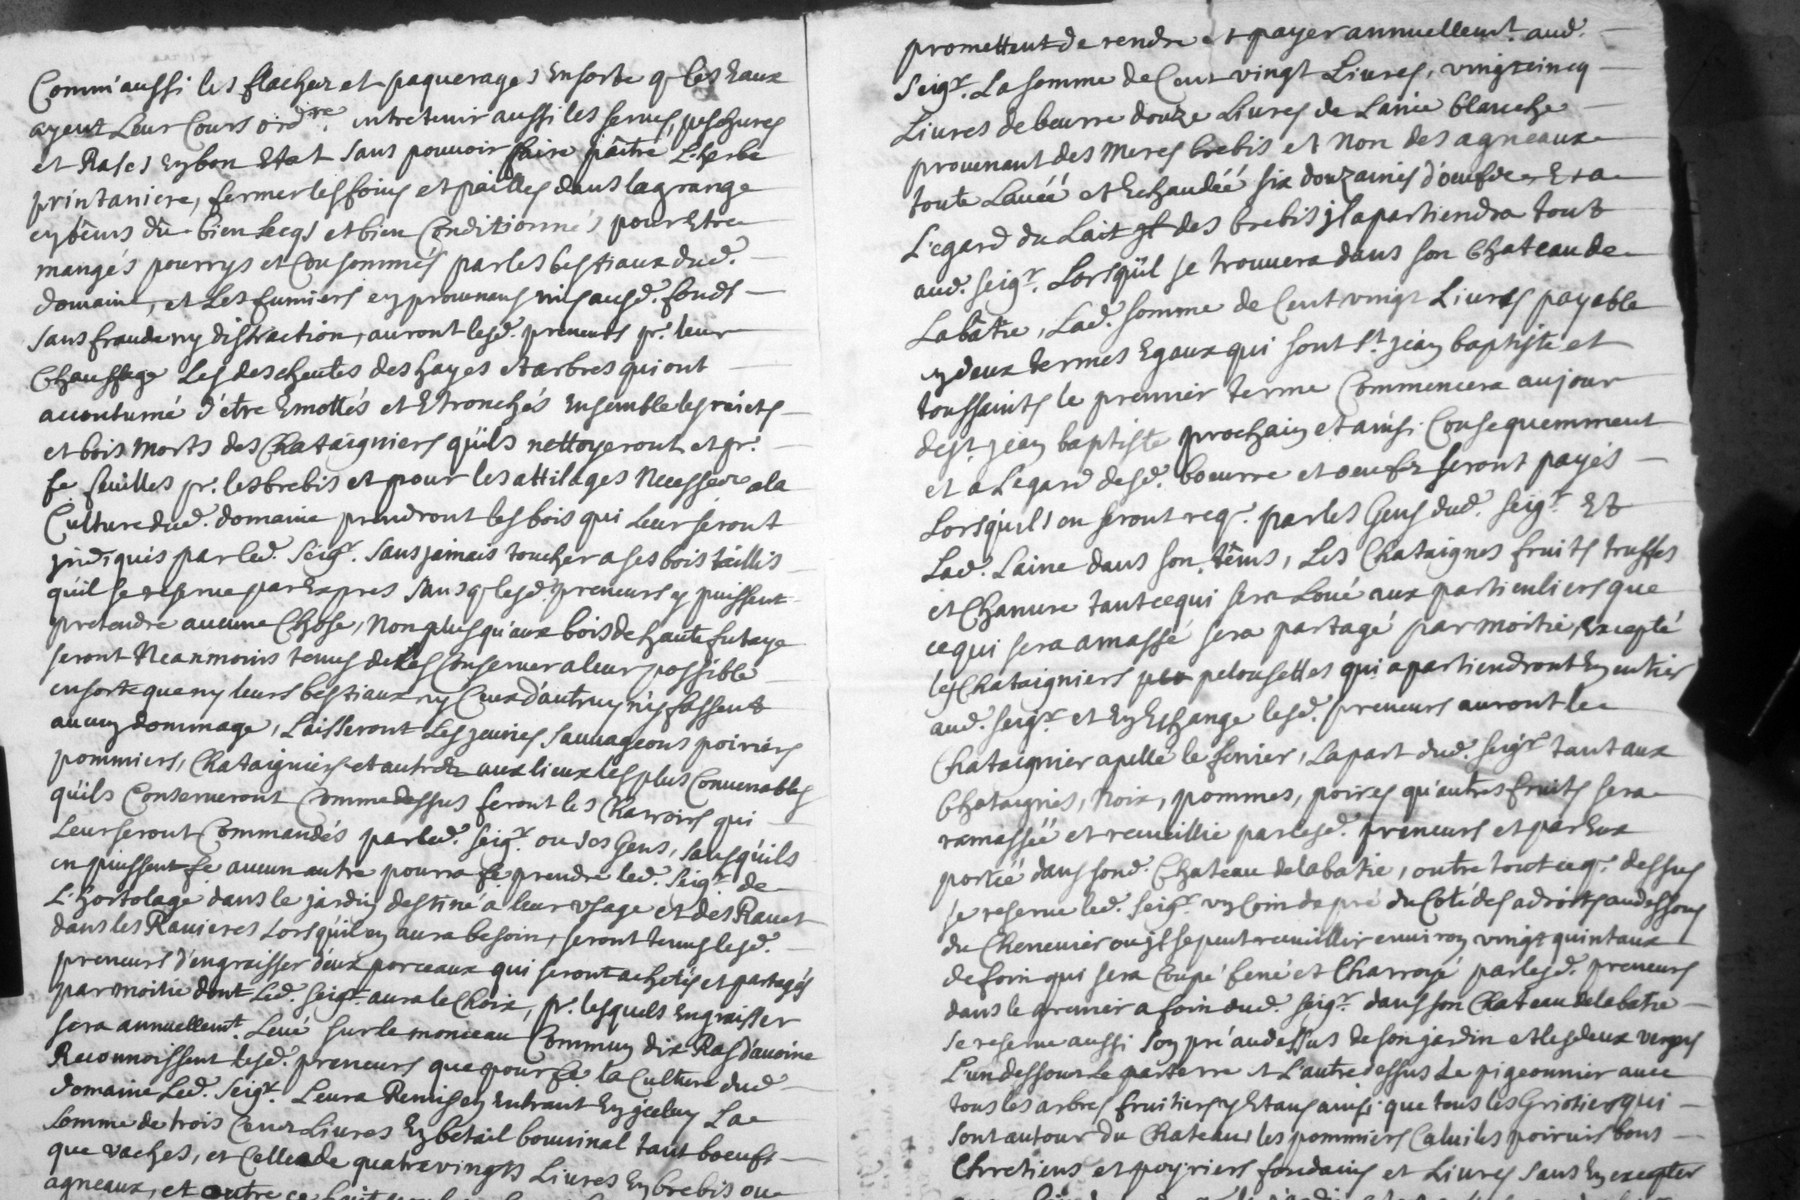 Comm'aussi les flachez et paquerages Ensorte q les Eaux
ayent Leur Cours ordre. entretenir aussi les serves, peschures
et Rases En bon Etat sans pouvoir faire paître L'herbe
printaniere, fermer les foins et pailles dans la grange
bien secqs et bien Conditionnés pour Etre
mangés pourrys et Consommés par les bestiaux dud.
domaine, et Les fumiers en provenens mis ausd. fonds
sans fraude ny distraction, auront lesd. preneurs pr. leur
Chauffage Les descheutes des hayes et arbres qui ont
accoutumé d'etre Emottés et Etronchés Ensemble les
et bois morts des Chataigniers qu'ils nettoyeront et pr.
fe feuilles pr. les brebis et pour les attilages Necessres a la
Culture dud. domaine prendront les bois qui Leur seront
indiqués par led. Seigr. sans jamais toucher a ses bois taillis
qu'il se reserve par Expres sans q lesd. preneurs y puissent
pretendre aucune Chose, Non plus qu'aux bois de haute futaye
seront Neanmoins tenus de les Conserver a leur possible
ensorte que ny leurs bestiaux ny Ceux d'autruy n'y fassent
aucun dommage, Laisseront Les jeunes sauvageons poiriers
pommiers, Chataigniers et autres aux lieux les plus Convenables
qu'ils Conserveront Comme dessus feront les Charrois qui
Leur seront Commandés par led. Seigr. ou ses Gens, sans qu'ils
en puissent fe aucun autre pourra fe prendre led. Seigr. de
L'hortolage dans le jardin destiné a leur usage et des Raves
dans les Ravieres Lorsqu'il en aura besoin, seront tenus lesd.
preneurs d'engraisser deux porceaux qui seront achetés et partagés
par moitie dont Led. Seigr. aura le Choix, pr. lesquels Engraisser
sera annuellemt. Levé sur le monceau Commun dix Ras d'avoine
Reconnoissent lesd. preneurs que pour fe la Culture dud.
domaine Led. Seigr. Leur a Remis en Entrant En jceluy La
somme de trois Cent Livres En betail bouvinal tant boeufs
que vaches, et Celle de quatrevingts Livres En brebis ou
agneaux, et outre ce
promettent de rendre et payer annuellemt. aud.
Seigr. La somme de Cent vingt Livres, vingt cincq
Livres de beurre douze Livres de Laine blanche
provenant des meres brebis et Non des agneaux
toute Lavéé et Echaudéé six douzaines d'oeufs Et a
L'egard du Lait des brebis jl apartiendra tout
aud. Seigr. Lorsqu'il se trouvera dans son Chateau de
Labâtie, Lad. somme de Cent vingt Livres payable
en deux termes Egaux qui sont St. jean baptiste et
toussaints le premier terme Commencera au jour
de St. jean baptiste prochain et ainsi Consequemment
et a Legard desd. beurre et oeufs seront payés
Lorsqu'ils en seront reqs. par les Gens dud. Seigr. Et
Lad. Laine dans son tems, Les Chataignes fruits truffes
et Chanvre tant ce qui sera Loué aux particuliers que
ce qui sera amassé sera partagé par moitié, Excepté
les Chataigniers pelousettes qui apartiendront En entier
aud. Seigr. et En Echange lesd. preneurs auront le
Chataignier apellé le fenier, La part dud. Seigr. tant aux
Chataignes, Noix, pommes, poires qu'autres fruits sera
ramassée et recueillie par lesd. preneurs et par Eux
portée dans sond. Chateau de la batie, outre tout ce q. dessus
se reserve led. Seigr. un Coin de pré du Coté des adroits au dessous
du Chenevier ou jl se peut recueillir environ vingt quintaux
de foin qui sera Coupé fené et Charroyé par lesd. preneurs
dans le grenier a foin dud. Seigr. dans son Chateau de la batie
se reserve aussi son pré au dessus de son jardin et les deux vergers
L'un dessous Le parterre et L'autre dessus Le pigeonnier avec
tous les arbres fruitiers y Etans ainsi que tous les Griotiers qui
sont autour du Chateau les pommiers Calvils poiriers bons
Chretiens et poyriers fondants et Livres sans En excepter